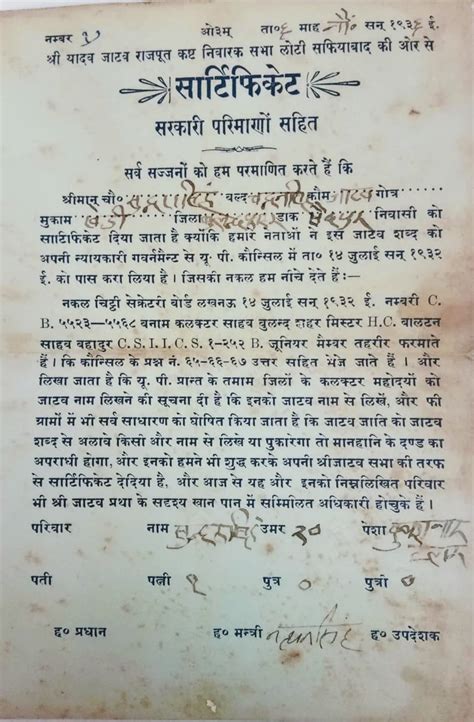 नम्बर ओ३म् ता० माह सन् १९३६ ई.
श्री यादव जाटव राजपूत कष्ट निवारक सभा लोटी सफियाबाद की ओर से
सार्टिफिकेट
सरकारी परिमाणों सहित
सर्व सज्जनों को हम परमाणित करते हैं कि
श्रीमान् चौ० वल्द कौम जाटव गोत्र
मुकाम जिला डाक निवासी को
सार्टिफिकेट दिया जाता है क्योंकि हमारे नेताओं ने इस जाटव शब्द को
अपनी न्यायकारी गवर्नमैन्ट से यू. पी. कौन्सिल में ता० १४ जुलाई सन् १९३२
ई. को पास करा लिया है । जिसकी नकल हम नीचे देते हैं :—
नकल चिट्ठी सेक्रेटरी बोर्ड लखनऊ १४ जुलाई सन् १९३२ ई. नम्बरी C.
B. ५५२३—५५६८ बनाम कलक्टर साहब बुलन्द शहर मिस्टर H.C. बालटन
साहब बहादुर C.S.I.I.C.S. १-२५२ B. जूनियर मैम्बर तहरीर फरमाते
हैं । कि कौन्सिल के प्रश्न नं. ६५-६६-६७ उत्तर सहित भेजे जाते हैं । और
लिखा जाता है कि यू. पी. प्रान्त के तमाम जिलों के कलक्टर महादयों को
जाटव नाम लिखने की सूचना दी है कि इनको जाटव नाम से लिखें, और फी
ग्रामों में भी सर्व साधारण को घोषित किया जाता है कि जाटव जाति को जाटव
शब्द से अलावे किसी और नाम से लिख या पुकारेगा तो मानहानि के दण्ड का
अपराधी होगा, और इनको हमने भी शुद्ध करके अपनी श्रीजाटव सभा की तरफ
से सार्टिफिकेट देदिया है, और आज से यह और इनको निम्नलिखित परिवार
भी श्री जाटव प्रथा के सदृश्य खान पान में सम्मिलत अधिकारी होचुके हैं ।
परिवार नाम उमर २० पेशा
पती पत्नि १ पुत्र ० पुत्री ०
ह० प्रधान ह० मन्त्री ह० उपदेशक